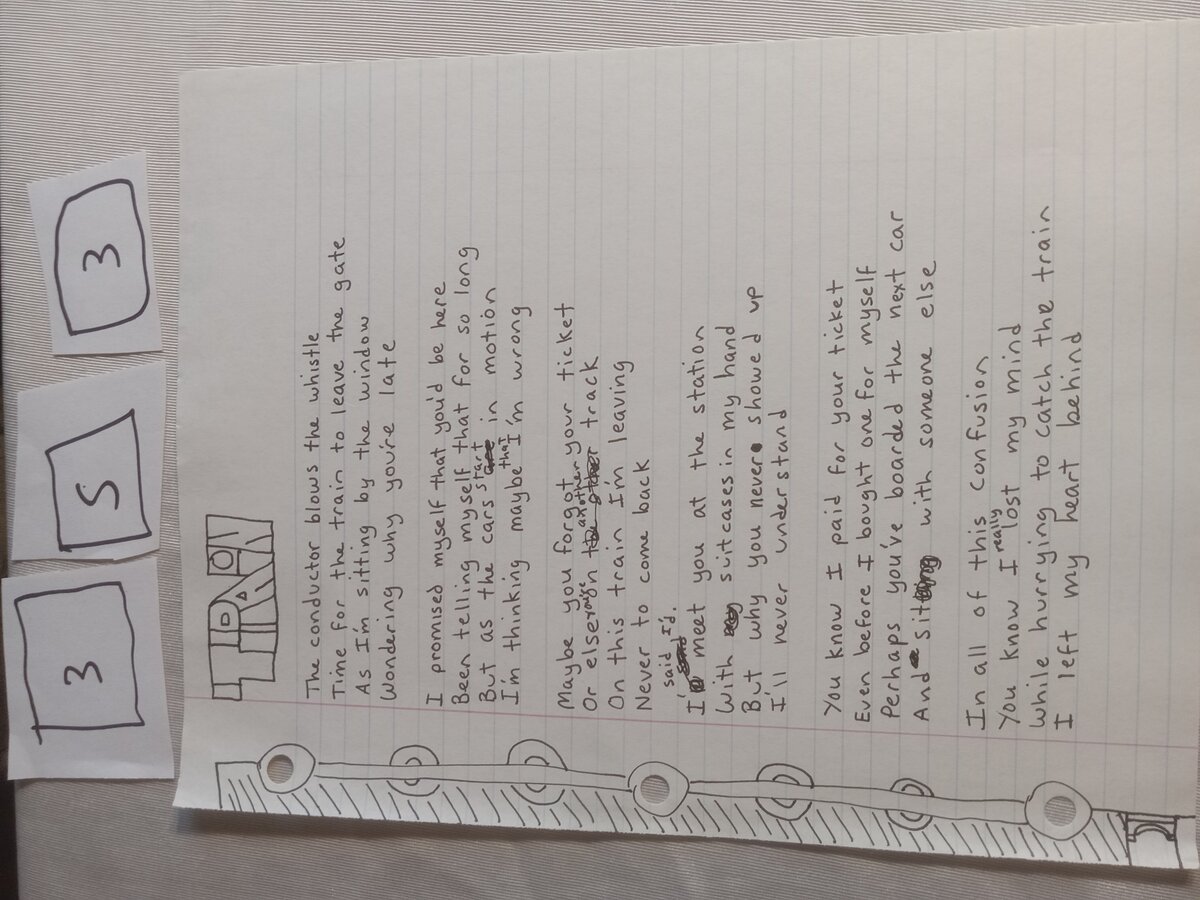 3 5 3
TRAIN
The conductor blows the whistle
Time for the train to leave the gate
As I'm sitting by the window
Wondering why you're late
I promised myself that you'd be here
Been telling myself that for so long
But as the cars start in motion
I'm thinking maybe that I'm wrong
Maybe you forgot your ticket
Or else on another track
On this train I'm leaving
Never to come back
I said I'd meet you at the station
With suitcases in my hand
But why you never showed up
I'll never understand
You know I paid for your ticket
Even before I bought one for myself
Perhaps you've boarded the next car
And sit with someone else
In all of this confusion
You know I really lost my mind
While hurrying to catch the train
I left my heart behind